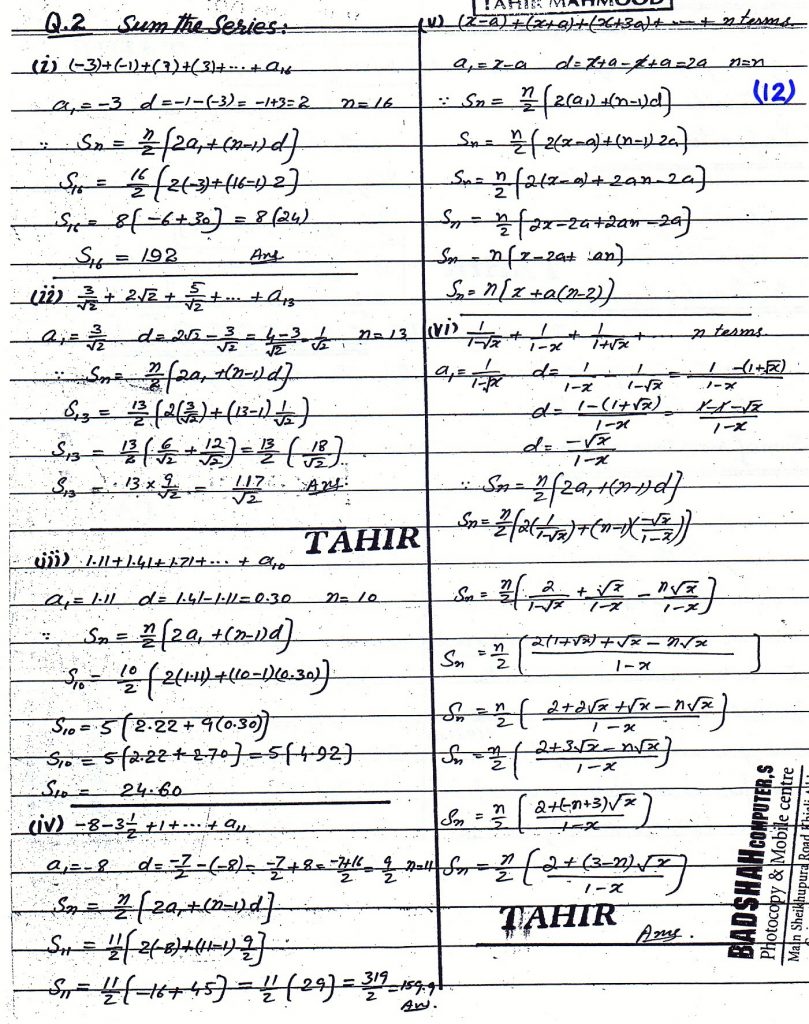 Q.2 Sum the Series:
(i) (-3)+(-1)+(3)+(3)+⋯+a₁₆
a₁=-3 d=-1-(-3)=-1+3=2 n=16
∵ Sn = n/2[2a₁+(n-1)d]
S₁₆ = 16/2[2(-3)+(16-1)2]
S₁₆ = 8[-6+30] = 8(24)
S₁₆ = 192 Ans
(ii) 3/√2 + 2√2 + 5/√2 +⋯+a₁₃
a₁=3/√2 d=2√2-3/√2=4-3/√2=1/√2 n=13
∵ Sn = n/2[2a₁+(n-1)d]
S₁₃ = 13/2[2(3/√2)+(13-1)1/√2]
S₁₃ = 13/2[6/√2+12/√2]=13/2[18/√2]
S₁₃ = 13×9/√2 = 117/√2 Ans.
TAHIR
(iii) 1.11+1.41+1.71+⋯+a₁₀
a₁=1.11 d=1.41-1.11=0.30 n=10
∵ Sn = n/2[2a₁+(n-1)d]
S₁₀ = 10/2[2(1.11)+(10-1)(0.30)]
S₁₀ = 5[2.22+9(0.30)]
S₁₀ = 5[2.22+2.70]=5[4.92]
S₁₀ = 24.60
(iv) -8-3½+1+⋯+a₁₁
a₁=-8 d=-7/2-(-8)=-7/2+8=-7+16/2=9/2 n=11
Sn = n/2[2a₁+(n-1)d]
S₁₁ = 11/2[2(-8)+(11-1)9/2]
S₁₁ = 11/2[-16+45] = 11/2[29] = 319/2 =159.9
Ans.
TAHIR MAHMOOD
(v) (x-a)+(x+a)+(x+3a)+⋯+n terms
a₁=x-a d=x+a-x+a=2a n=n
(12)
∵ Sn = n/2[2(a₁)+(n-1)d]
Sn = n/2[2(x-a)+(n-1)2a]
Sn = n/2[2(x-a)+2an-2a]
Sn = n/2[2x-2a+2an-2a]
Sn = n[x-2a+an]
Sn = n[x+a(n-2)]
(vi) 1/1-√x + 1/1-x + 1/1+√x +⋯ n terms
a₁=1/1-√x d=1/1-x - 1/1-√x = 1-(1+√x)/1-x
d=1-(1+√x)/1-x = 1-1-√x/1-x
d=-√x/1-x
∵ Sn = n/2[2a₁+(n-1)d]
Sn = n/2[2(1/1-√x)+(n-1)(-√x/1-x)]
Sn = n/2[2/1-√x + √x/1-x - n√x/1-x]
Sn = n/2[2(1+√x)+√x-n√x/1-x]
Sn = n/2[2+2√x+√x-n√x/1-x]
Sn = n/2[2+3√x-n√x/1-x]
Sn = n/2[2+(-n+3)√x/1-x]
Sn = n/2[2+(3-n)√x/1-x]
TAHIR
Ans.
BADSHAH COMPUTER,S
Photocopy & Mobile centre
Main Sheikhupura Road